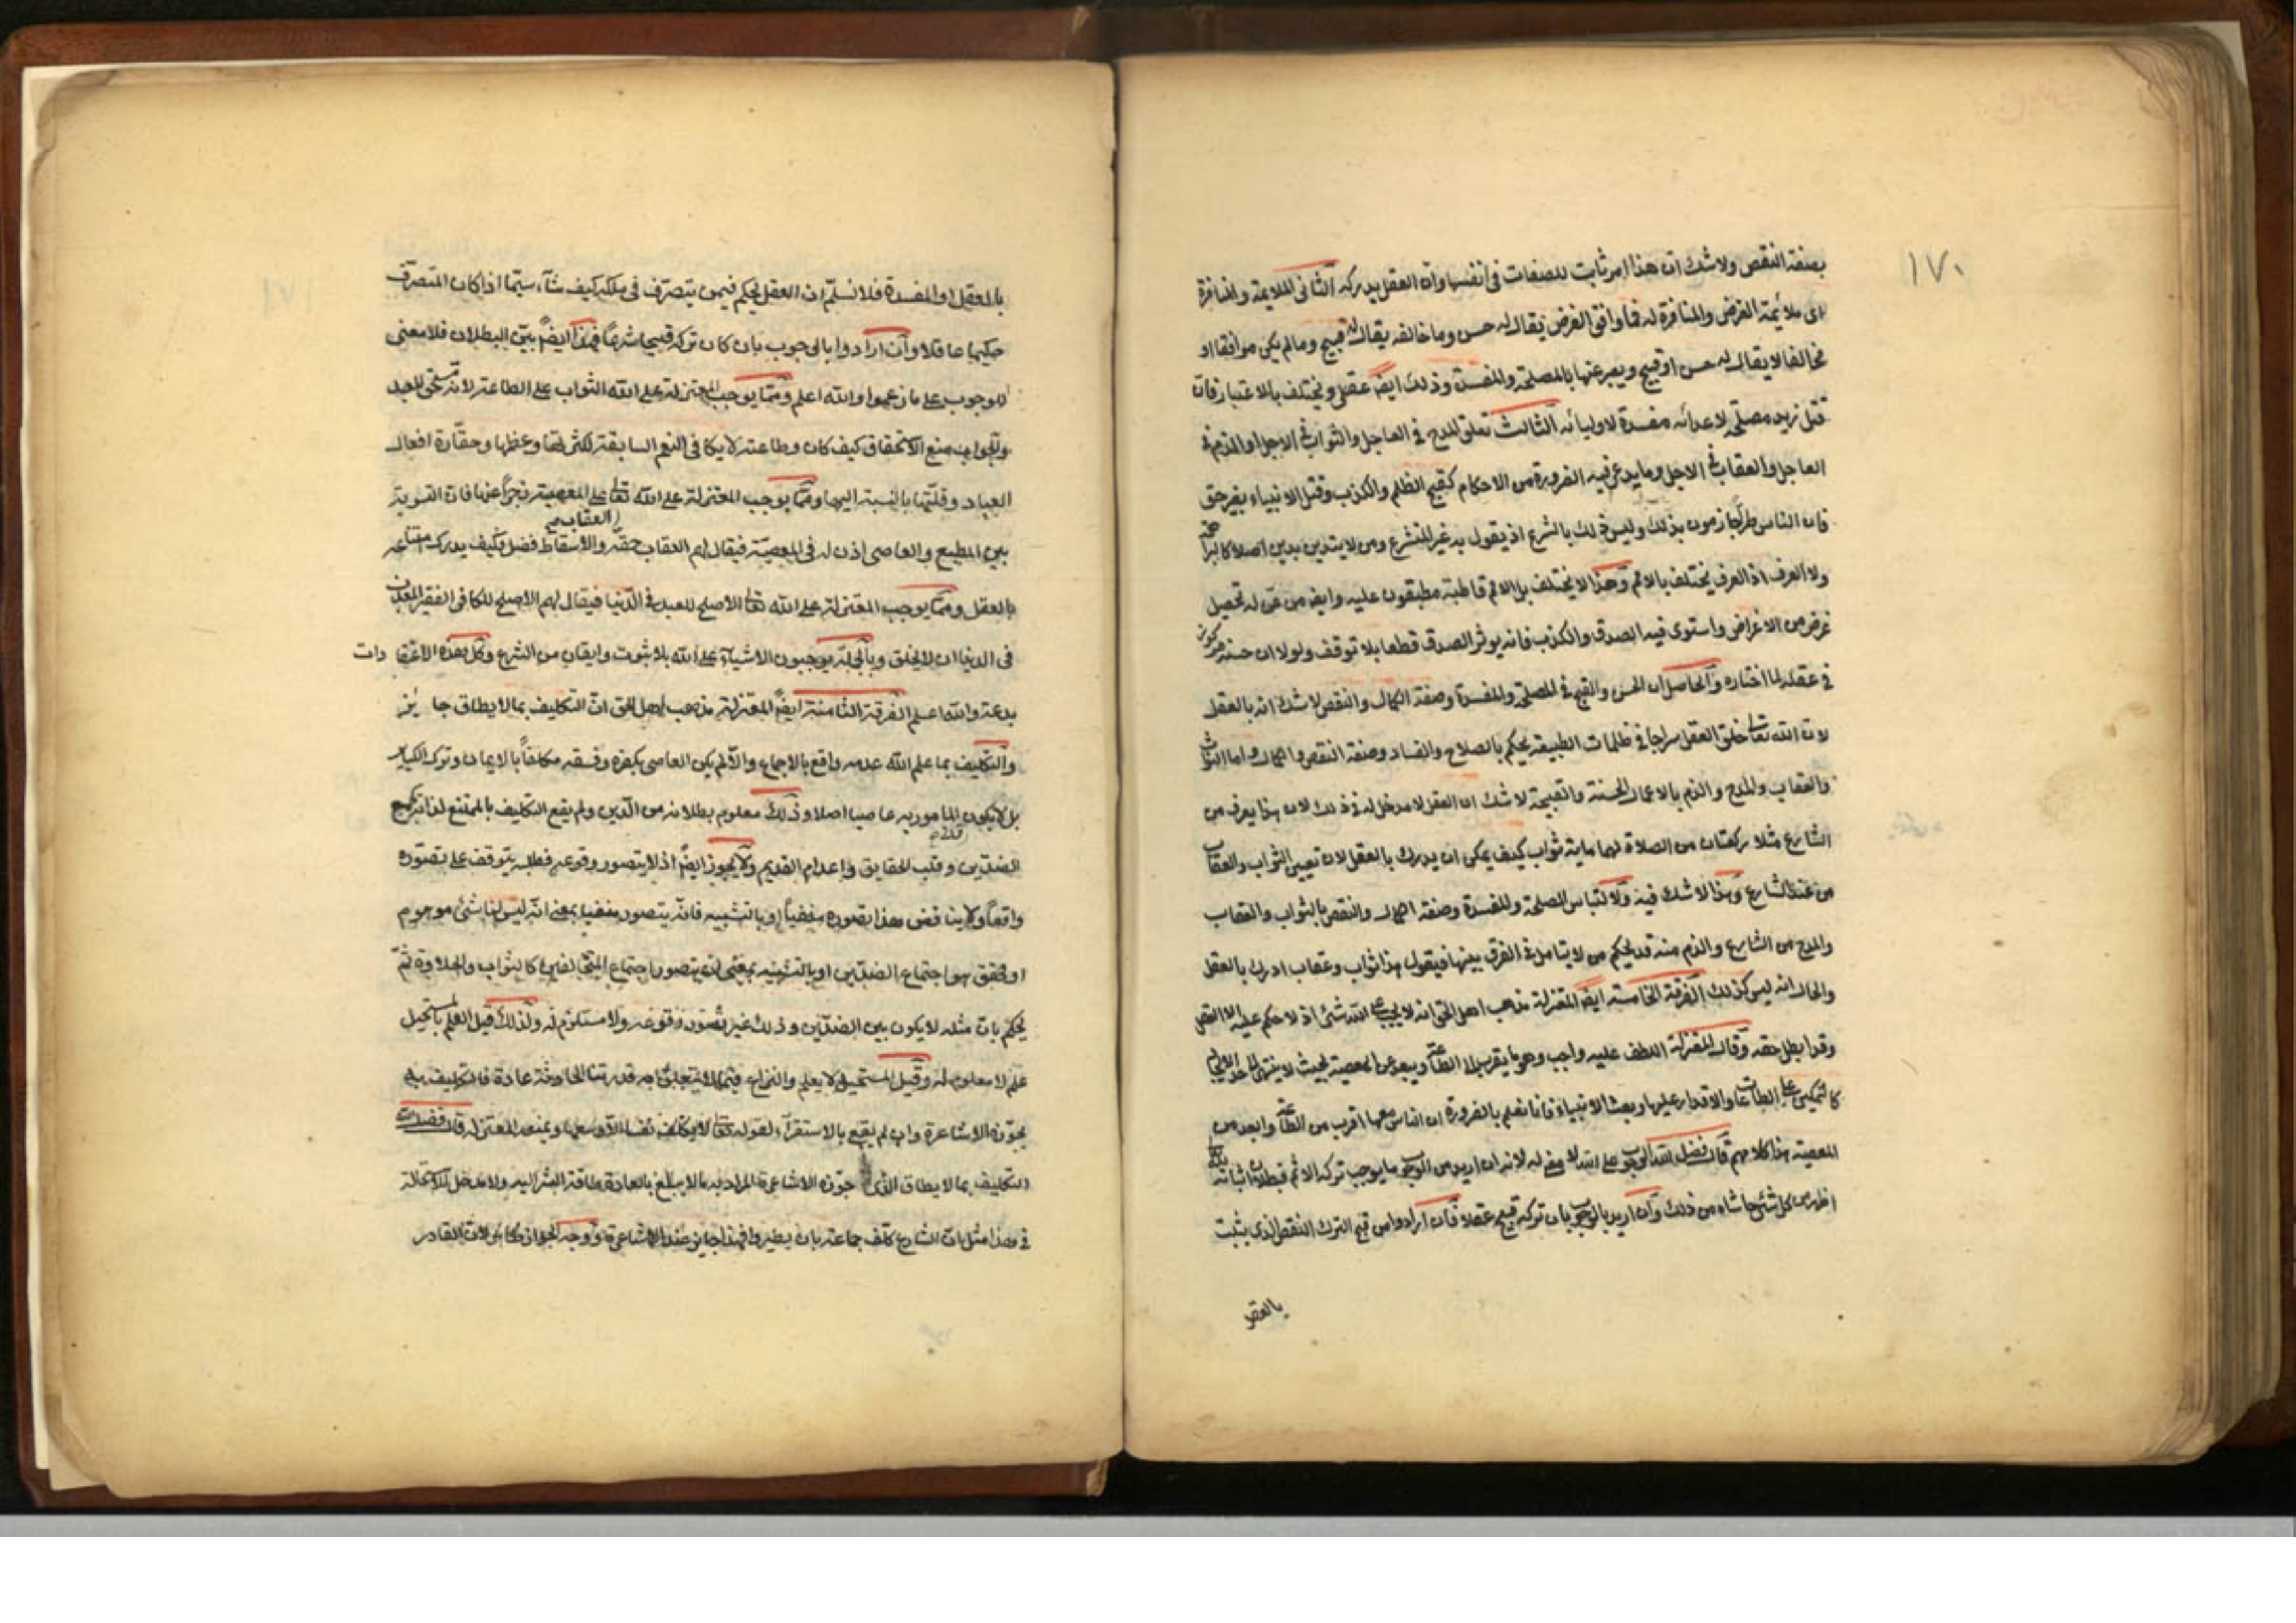 ١٧٠
بصفة النقص ولا شك ان هذا امر ثابت للصفات فى انفسها وان العقل يدركه الثانى الملايمة والمنافرة
اى ملائمة الغرض والمنافرة له فما وافق الغرض يقال له حسن وما خالفه يقال له قبيح وما لم يكن موافقا او
مخالفا لا يقال له حسن او قبيح ويعبر عنها بالمصلحة والمفسدة وذلك ايضا عقلى ويختلف بالاعتبار فان
قتل زيد مصلحة لاعدائه مفسدة لاوليائه الثالث تعلق المدح فى العاجل والثواب فى الاجل او الذم فى
العاجل والعقاب فى الاجل وما يدعى فيه الضرورة من الاحكام كقبح الظلم والكذب وقتل الانبياء بغير حق
فان الناس طرا جازمون بذلك وليس ذلك بالشرع اذ يقول به غير المتشرع ومن لا يتدين بدين اصلا كالبراهمة
ولا العرف اذ العرف يختلف بالامم وهذا لا يختلف بل الامم قاطبة مطبقون عليه وايضا من عن له تحصيل
غرض من الاغراض واستوى فيه الصدق والكذب فانه يوثر الصدق قطعا بلا توقف ولولا ان حسنه مركوز
فى عقله لما اختاره والحاصل ان الحسن والقبح فى المصلحة والمفسدة وصفة الكمال والنقص لا شك انه بالعقل
لان الله تعالى خلق العقل سراجا فى ظلمات الطبيعة يحكم بالصلاح والفساد وصفة النقص والكمال واما الثواب
والعقاب والمدح والذم بالاعمال الحسنة والقبيحة لا شك ان العقل لا مدخل له فى ذلك لان هذا يعرف من
الشارع مثلا ركعتان من الصلاة لهما ماية ثواب كيف يمكن ان يدرك بالعقل لان تعيين الثواب والعقاب
من عند الشارع وهذا لا شك فيه ولالتباس المصلحة والمفسدة وصفة الكمال والنقص بالثواب والعقاب
والمدح من الشارع والذم منه قد يحكم من لا يتامل فى الفرق بينها فيقول هذا ثواب وعقاب ادرك بالعقل
والحال انه ليس كذلك الفرقة الخامسة ايضا المعتزلة مذهب اهل الحق انه لا يجب على الله شئ اذ لا حكم عليه الا العقل
وقد ابطل حقه وقالت المعتزلة اللطف عليه واجب وهو ما يقرب الى الطاعة ويبعد عن المعصية بحيث لا ينتهى الى حد الالجا
كالتمكين على الطاعات والاقدار عليها وبعث الانبياء فانا نعلم بالضرورة ان الناس معها اقرب من الطاعة وابعد من
المعصية هذا كلامهم قال فضل الله الوجوب على الله لا معنى له لانه ان اريد من الوجوب ما يوجب تركه الاثم فبطلان اثباته
اظهر من كل شئ حاشاه من ذلك وان اريد بالوجوب بان تركه قبيح عقلا فان ارادوا من قبح الترك النقص الذى يثبت
بالعقل
بالعقل او المفسدة فلا نسلم ان العقل يحكم فيمن يتصرف فى ملكه كيف شاء سيما اذا كان المتصرف
حكيما عاقلا وان ارادوا بالوجوب بان كان تركه قبيحا شرعا فهذا ايضا بين البطلان فلا معنى
للوجوب على ما زعموا والله اعلم ومما يوجب المعتزلة على الله الثواب على الطاعة لانه مستحق للعبد
والجواب منع الاستحقاق كيف كان وطاعته لا يكافى النعم السابقة لكثرتها وعظمها وحقارة افعال
العباد وقلتها بالنسبة اليها ومما يوجب المعتزلة على الله تعالى على المعصية زجرا عنها فان التسوية
العقاب صح
بين المطيع والعاصى اذن له فى المعصية فيقال لهم العقاب حقه والاسقاط فضل فكيف يدرك امتناعه
بالعقل ومما يوجب المعتزلة على الله تعالى الاصلح للعبد فى الدنيا فيقال لهم الاصلح للكافر الفقير المعذب
فى الدنيا ان لا يخلق وبالجملة يوجبون الاشياء على الله بلا ثبوت وايقان من الشرع وكل هذه الاعتقادات
بدعة والله اعلم الفرقة الثامنة ايضا المعتزلة مذهب اهل الحق ان التكليف بما لا يطاق جايز
والتكليف بما علم الله عدمه واقع بالاجماع والا لم يكن العاصى بكفره وفسقه مكلفا بالايمان وترك الكباير
بل لا يكون المامور به عاصيا اصلا وذلك معلوم بطلانه من الدين ولم يقع التكليف بالممتنع لذاته كجمع
الضدين وقلب الحقايق واعدام القديم ولا يجوز ايضا اذ لا يتصور وقوعه فطلبه يتوقف على تصوره
واقعا ولا يناقض هذا تصوره منفيا او بالتشبيه فانه يتصور منفيا بمعنى انه ليس لنا شئ موهوم
او محقق هو اجتماع الضدين او بالتشبيه بمعنى ان يتصور اجتماع المتخالفين كالثواب والحلاوة ثم
يحكم بان مثله لا يكون بين الضدين وذلك غير تصور وقوعه ولا مستلزم له ولذلك قيل العلم بالمستحيل
علم لا معلوم له وقيل المستحيل لا يعلم والنزاع فيما لا يتعلق به قدرتنا الحادثة عادة فالتكليف به
يجوزه الاشاعرة وان لم يقع بالاستقراء لقوله تعالى لا يكلف نفسا الا وسعها ويمنعه المعتزلة قال فضل الله
التكليف بما لا يطاق الذى جوزه الاشاعرة المراد به ما لا يبلغ بالعادة طاقة البشر اليه ولا مدخل للاستحالة
فى هذا مثل ان الشارع كلف جماعة بان يطيروا فهذا جايز عند الاشاعرة ووجه الجواز لان القادر